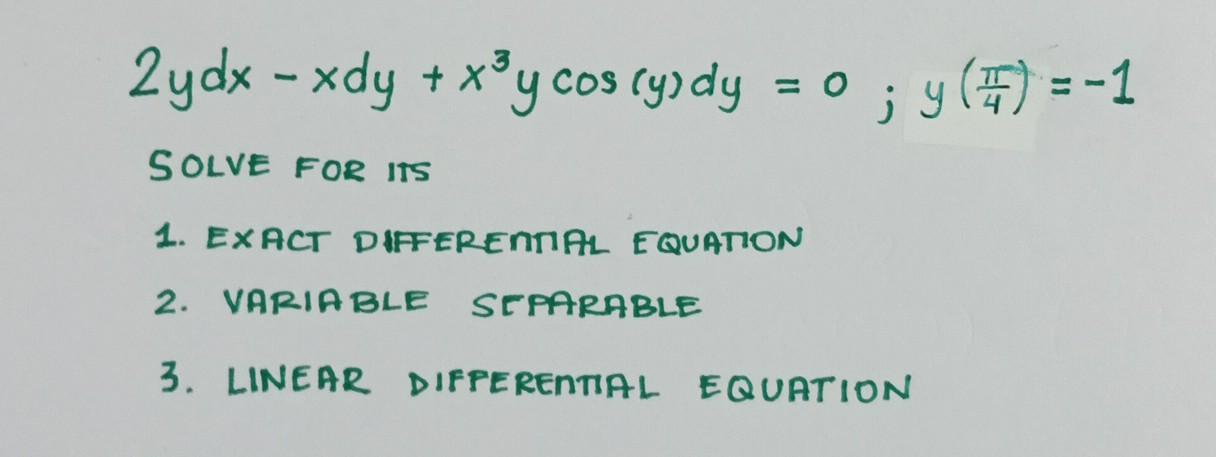 2ydx - xdy + x³y cos(y)dy = 0 ; y(π/4) = -1
SOLVE FOR ITS
1. EXACT DIFFERENTIAL EQUATION
2. VARIABLE SEPARABLE
3. LINEAR DIFFERENTIAL EQUATION